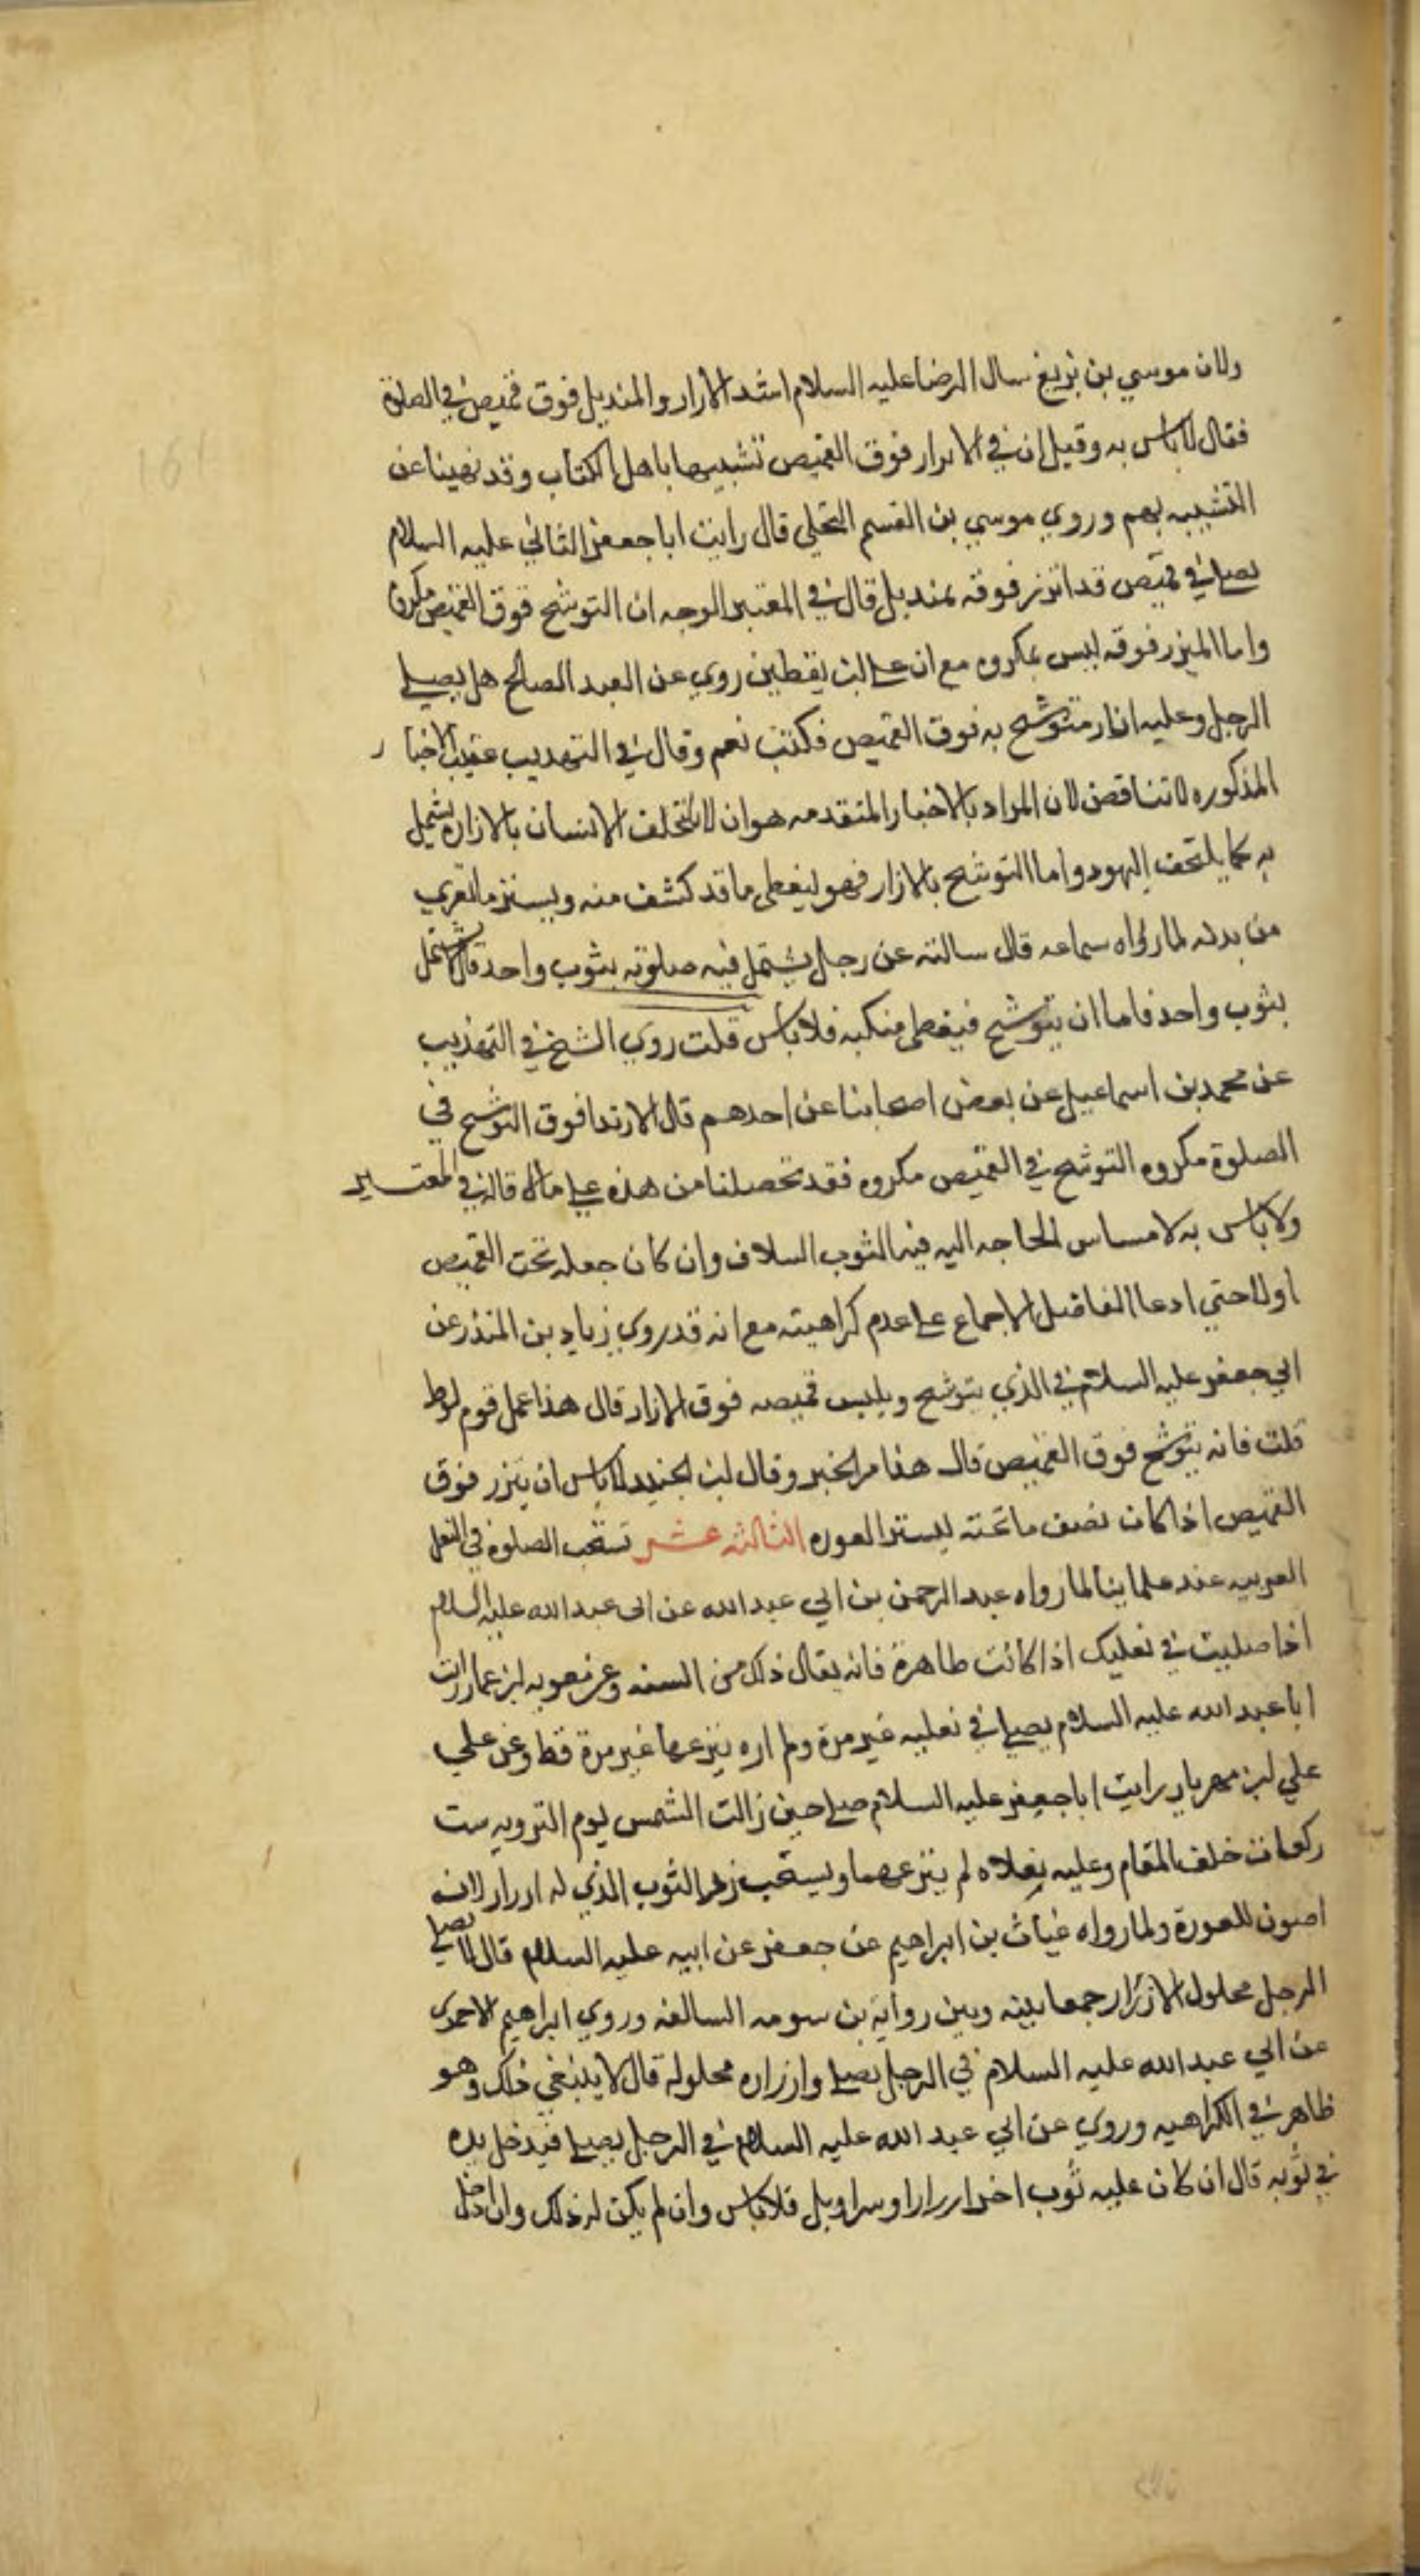 ولان موسي بن بزيع سال الرضا عليه السلام اشد الازار والمنديل فوق قميصي في الصلوة
فقال لا باس به وقيل ان في الابرار فوق القميص تشبيها باهل الكتاب وقد نهينا عن
التشبيه بهم وروي موسي بن القسم البجلي قال رايت ابا جعفر الثاني عليه السلام
يصلي في قميص قد اتزر فوقه بمنديل قال في المعتبر الوجه ان التوشح فوق القميص مكروه
واما الميزر فوقه ليس بمكروه مع ان علي بن يقطين روي عن العبد الصالح هل يصلي
الرجل وعليه ازار متوشح به فوق القميص فكتب نعم وقال في التهذيب عقيب الاخبار
المذكوره لا تناقض لان المراد بالاخبار المتقدمه هو ان لا يلتحف الانسان بالازار يشتمل
به كما يلتحف اليهود واما التوشح بالازار فهو ليغطي ما قد كشف منه ويستر ما تعري
من بدنه لما رواه سماعه قال سالته عن رجل يشتمل فيه صلوته بثوب واحد قال لا يشتمل
بثوب واحد فاما ان يتوشح فيغطي منكبه فلا باس قلت روي الشيخ في التهذيب
عن محمد بن اسماعيل عن بعض اصحابنا عن احدهم قال الارتدا فوق التوشح في
الصلوة مكروه التوشح في القميص مكروه فقد تحصلنا من هذه علي ما قاله في المعتبر
ولا باس به لامساس الحاجه اليه فيه الثوب السلاف وان كان جعله تحت القميص
اولا حتي ادعا الفاضل الاجماع علي عدم كراهيته مع انه قد روي زياد بن المنذر عن
ابي جعفر عليه السلام في الذي يتوشح ويلبس قميصه فوق الازار قال هذا عمل قوم لوط
قلت فانه يتوشح فوق القميص قال هذا من الخبر وقال ابن الجنيد لا باس ان يتزر فوق
القميص اذا كان يصف ما تحته ليستر العوره الثالثه عشر تستحب الصلوة في النعل
العربيه عند علماينا لما رواه عبد الرحمن بن ابي عبد الله عن ابي عبد الله عليه السلام
اذا صليت في نعليك اذا كانت طاهرة فانه يقال ذلك من السنه وعن معويه ابن عمار رايت
ابا عبد الله عليه السلام يصلي في نعليه غير مرة ولم اره ينزعهما غير مرة قط وعن علي
علي ابن مهريار رايت ابا جعفر عليه السلام صلي حين زالت الشمس يوم الترويه ست
ركعات خلف المقام وعليه نعلاه لم ينزعهما ويستحب زر الثوب الذي له ازرار لانه
اصون للعورة ولما رواه غياث بن ابراهيم عن جعفر عن ابيه عليه السلام قال لا يصلي
الرجل محلول الازرار جمعا بينه وبين رواية بن سومه السالفه وروي ابراهيم الاحمري
عن ابي عبد الله عليه السلام في الرجل يصلي وازراره محلولة قال لا ينبغي ذلك وهو
ظاهر في الكراهيه وروي عن ابي عبد الله عليه السلام في الرجل يصلي فيدخل يده
في ثوبه قال ان كان عليه ثوب اخر ازرار او سراويل فلا باس وان لم يكن له ذلك وان ادخل